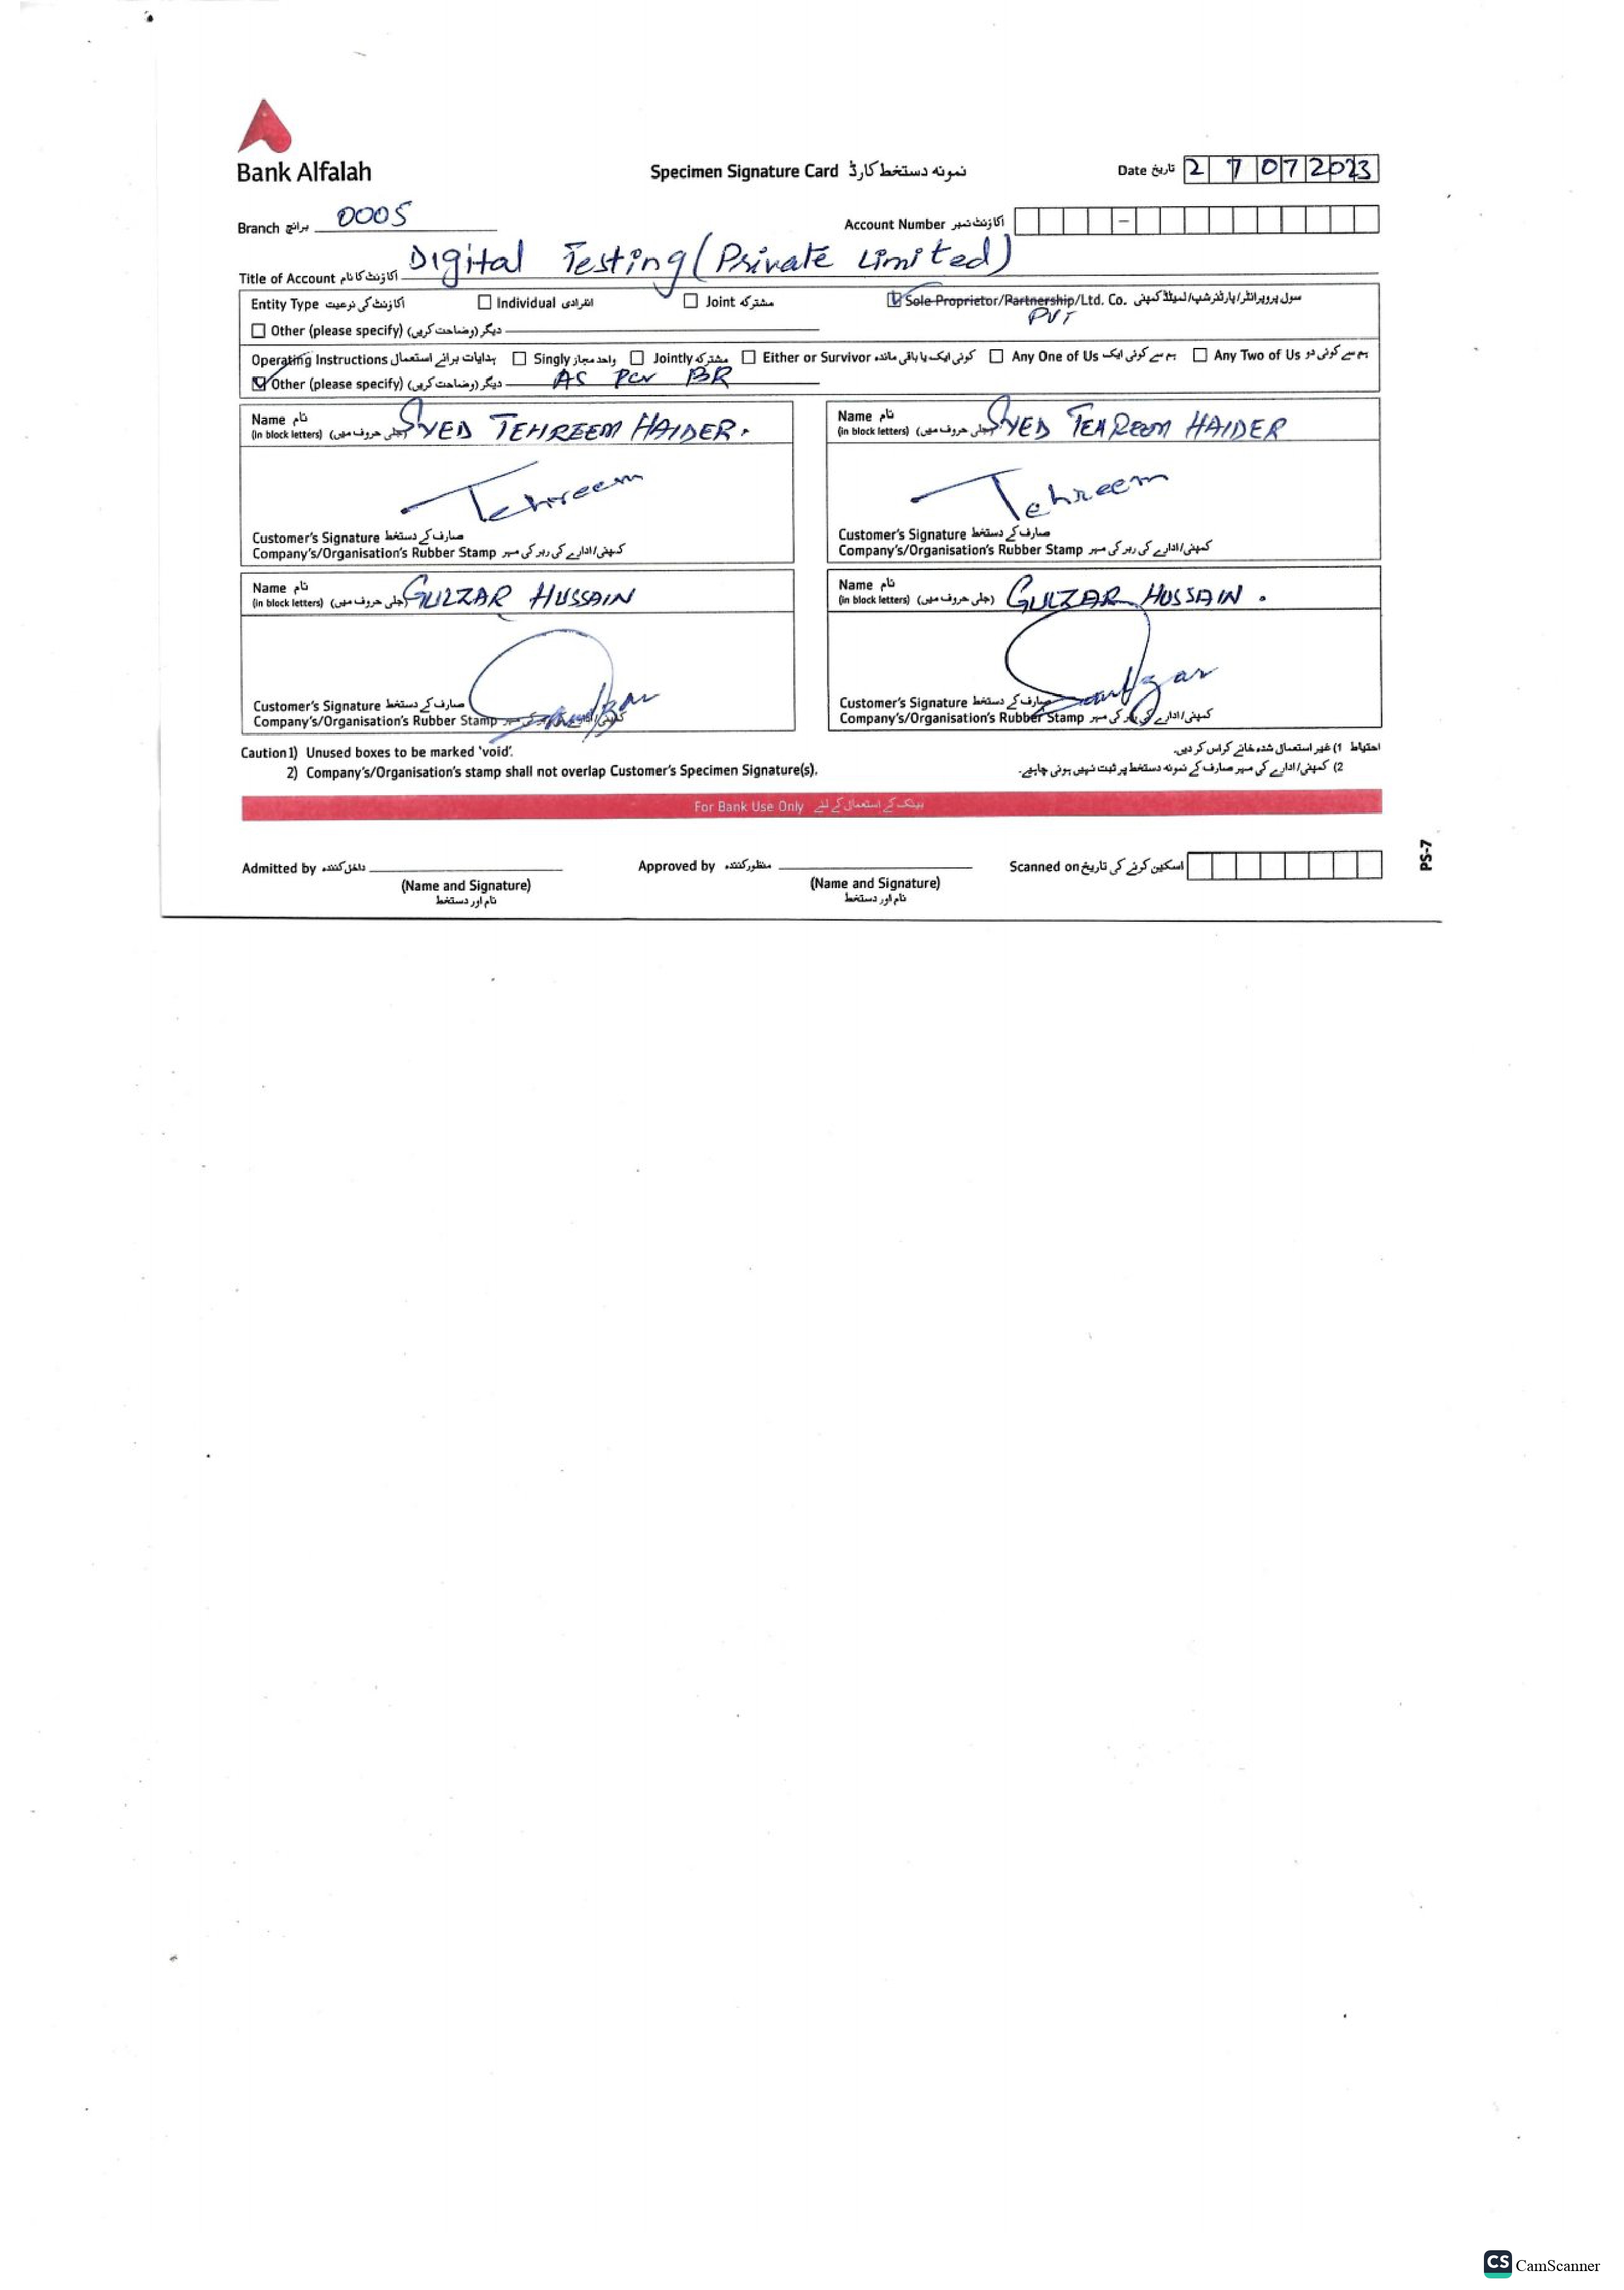 Bank Alfalah
Specimen Signature Card نمونہ دستخط کارڈ
Date تاریخ 2 7 0 7 2 0 2 3
Branch برانچ 0005
Account Number اکاؤنٹ نمبر –
Title of Account اکاؤنٹ کا نام Digital Testing (Private Limited)
Entity Type اکاؤنٹ کی نوعیت Individual انفرادی Joint مشترکہ Sole Proprietor/Partnership/Ltd. Co. سول پروپرائٹر/پارٹنرشپ/لمیٹڈ کمپنی
PVT
Other (please specify) دیگر (وضاحت کریں)
Operating Instructions ہدایات برائے استعمال Singly واحد مجاز Jointly مشترکہ Either or Survivor کوئی ایک یا باقی ماندہ Any One of Us ہم سے کوئی ایک Any Two of Us ہم سے کوئی دو
Other (please specify) دیگر (وضاحت کریں) AS Per BR
Name نام
(in block letters) (جلی حروف میں) SYED TEHREEM HAIDER.
Tehreem
Customer's Signature صارف کے دستخط
Company's/Organisation's Rubber Stamp کمپنی/ادارے کی ربر کی مہر
Name نام
(in block letters) (جلی حروف میں) SYED TEHREEM HAIDER
Tehreem
Customer's Signature صارف کے دستخط
Company's/Organisation's Rubber Stamp کمپنی/ادارے کی ربر کی مہر
Name نام
(in block letters) (جلی حروف میں) GULZAR HUSSAIN
Customer's Signature صارف کے دستخط
Company's/Organisation's Rubber Stamp
Name نام
(in block letters) (جلی حروف میں) GULZAR HUSSAIN.
Customer's Signature صارف کے دستخط
Company's/Organisation's Rubber Stamp کمپنی/ادارے کی ربر کی مہر
Caution 1) Unused boxes to be marked 'void'.
2) Company's/Organisation's stamp shall not overlap Customer's Specimen Signature(s).
احتیاط 1) غیر استعمال شدہ خانے کراس کر دیں.
2) کمپنی/ادارے کی مہر صارف کے نمونہ دستخط پر ثبت نہیں ہونی چاہیے.
For Bank Use Only بینک کے استعمال کے لئے
Admitted by داخل کنندہ
(Name and Signature)
نام اور دستخط
Approved by منظور کنندہ
(Name and Signature)
نام اور دستخط
Scanned on اسکین کرنے کی تاریخ
PS-7
CS CamScanner